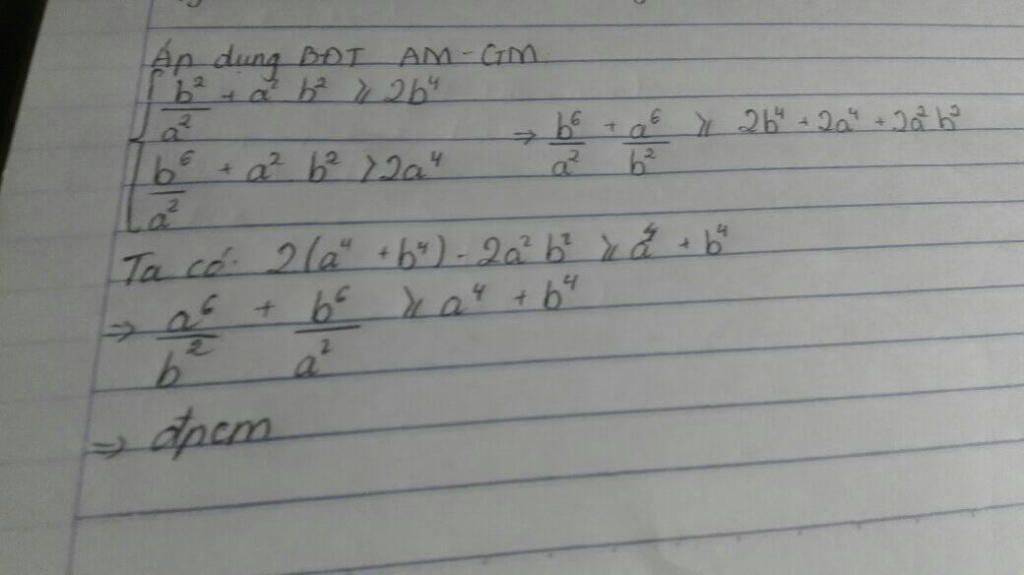 Áp dụng BĐT AM-GM
b²/a² + a² b² ≥ 2b⁴
b⁶/a² + a² b² > 2a⁴
⇒ b⁶/a² + a⁶/b² ≥ 2b⁴ + 2a⁴ + 2a²b²
Ta có: 2(a⁴ + b⁴) - 2a²b² ≥ a⁴ + b⁴
⇒ a⁶/b² + b⁶/a² ≥ a⁴ + b⁴
⇒ đpcm